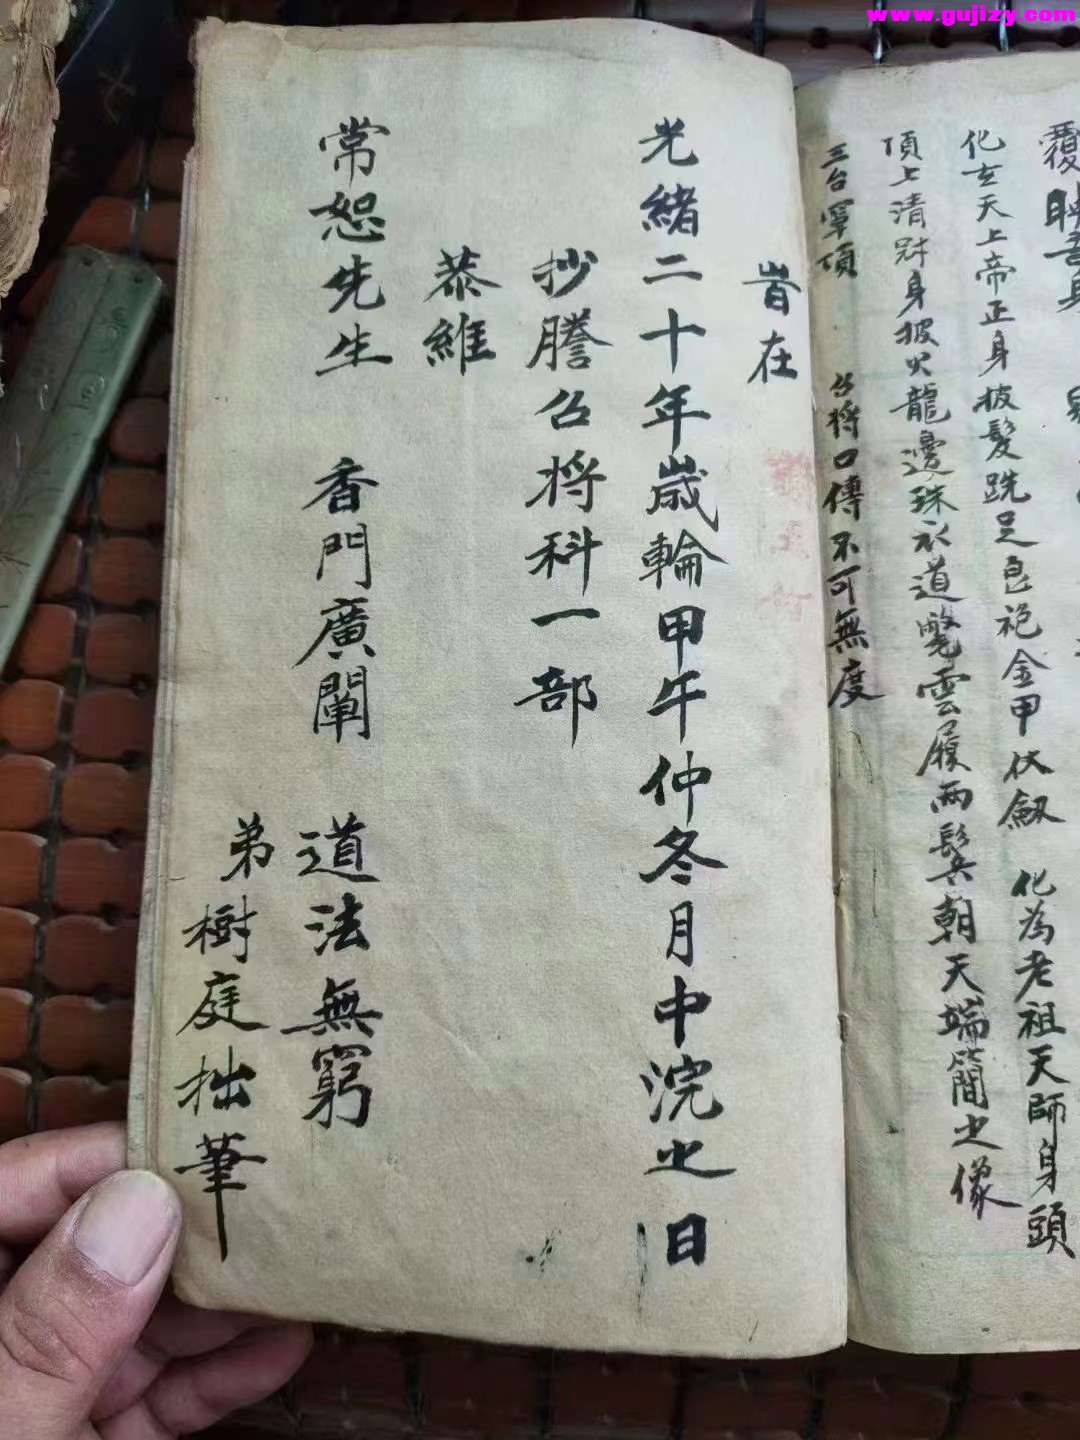 www.gujizy.com
覆映吾身
化玄天上帝正身披髮跣足皂袍金甲仗劔 化為老祖天師身頭
頂上清冠身披火龍邊珠衣道氅雲履兩鬓朝天端簡之像
三台罩頂 召將口傳不可無度
旹在
光緒二十年歲輪甲午仲冬月中浣之日
抄謄召将科一部
恭維
常恕先生 香門廣闡 道法無窮
弟樹庭拙筆